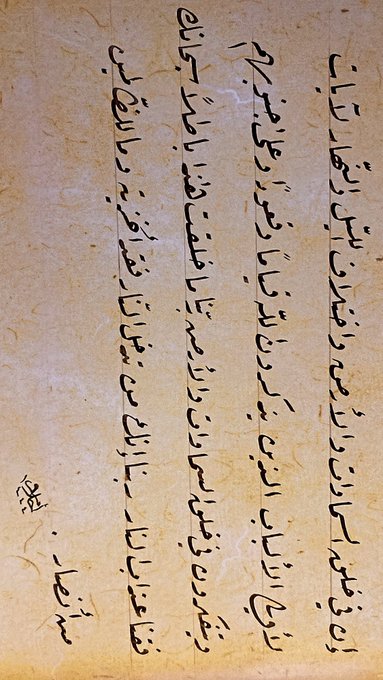 إن في خلق السماوات والأرض واختلاف الليل والنهار لآيات
لأولي الألباب الذين يذكرون الله قياما وقعودًا وعلى جنوبهم
ويتفكرون في خلق السماوات والأرض ربنا ما خلقت هذا باطلًا سبحانك
فقنا عذاب النار ربنا إنك من تدخل النار فقد أخزيته وما للظالمين
من أنصار .